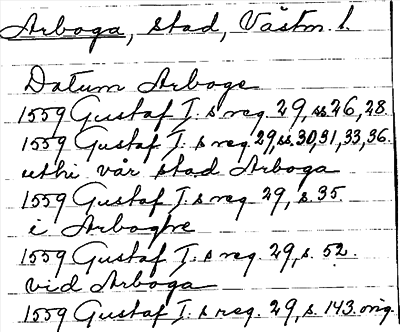 Arboga, stad, Västm. l.
Datum Arboge
1559 Gustaf I. s reg. 29, ss 26, 28.
1559 Gustaf I. s reg 29, ss. 30, 31, 33, 36.
uthi vår stad Arboga
1559 Gustaf I. s reg 29, s. 35.
i Arboghe
1559 Gustaf I. s reg. 29, s. 52.
vid Arboga
1559 Gustaf I. s reg. 29, s. 143. orig.